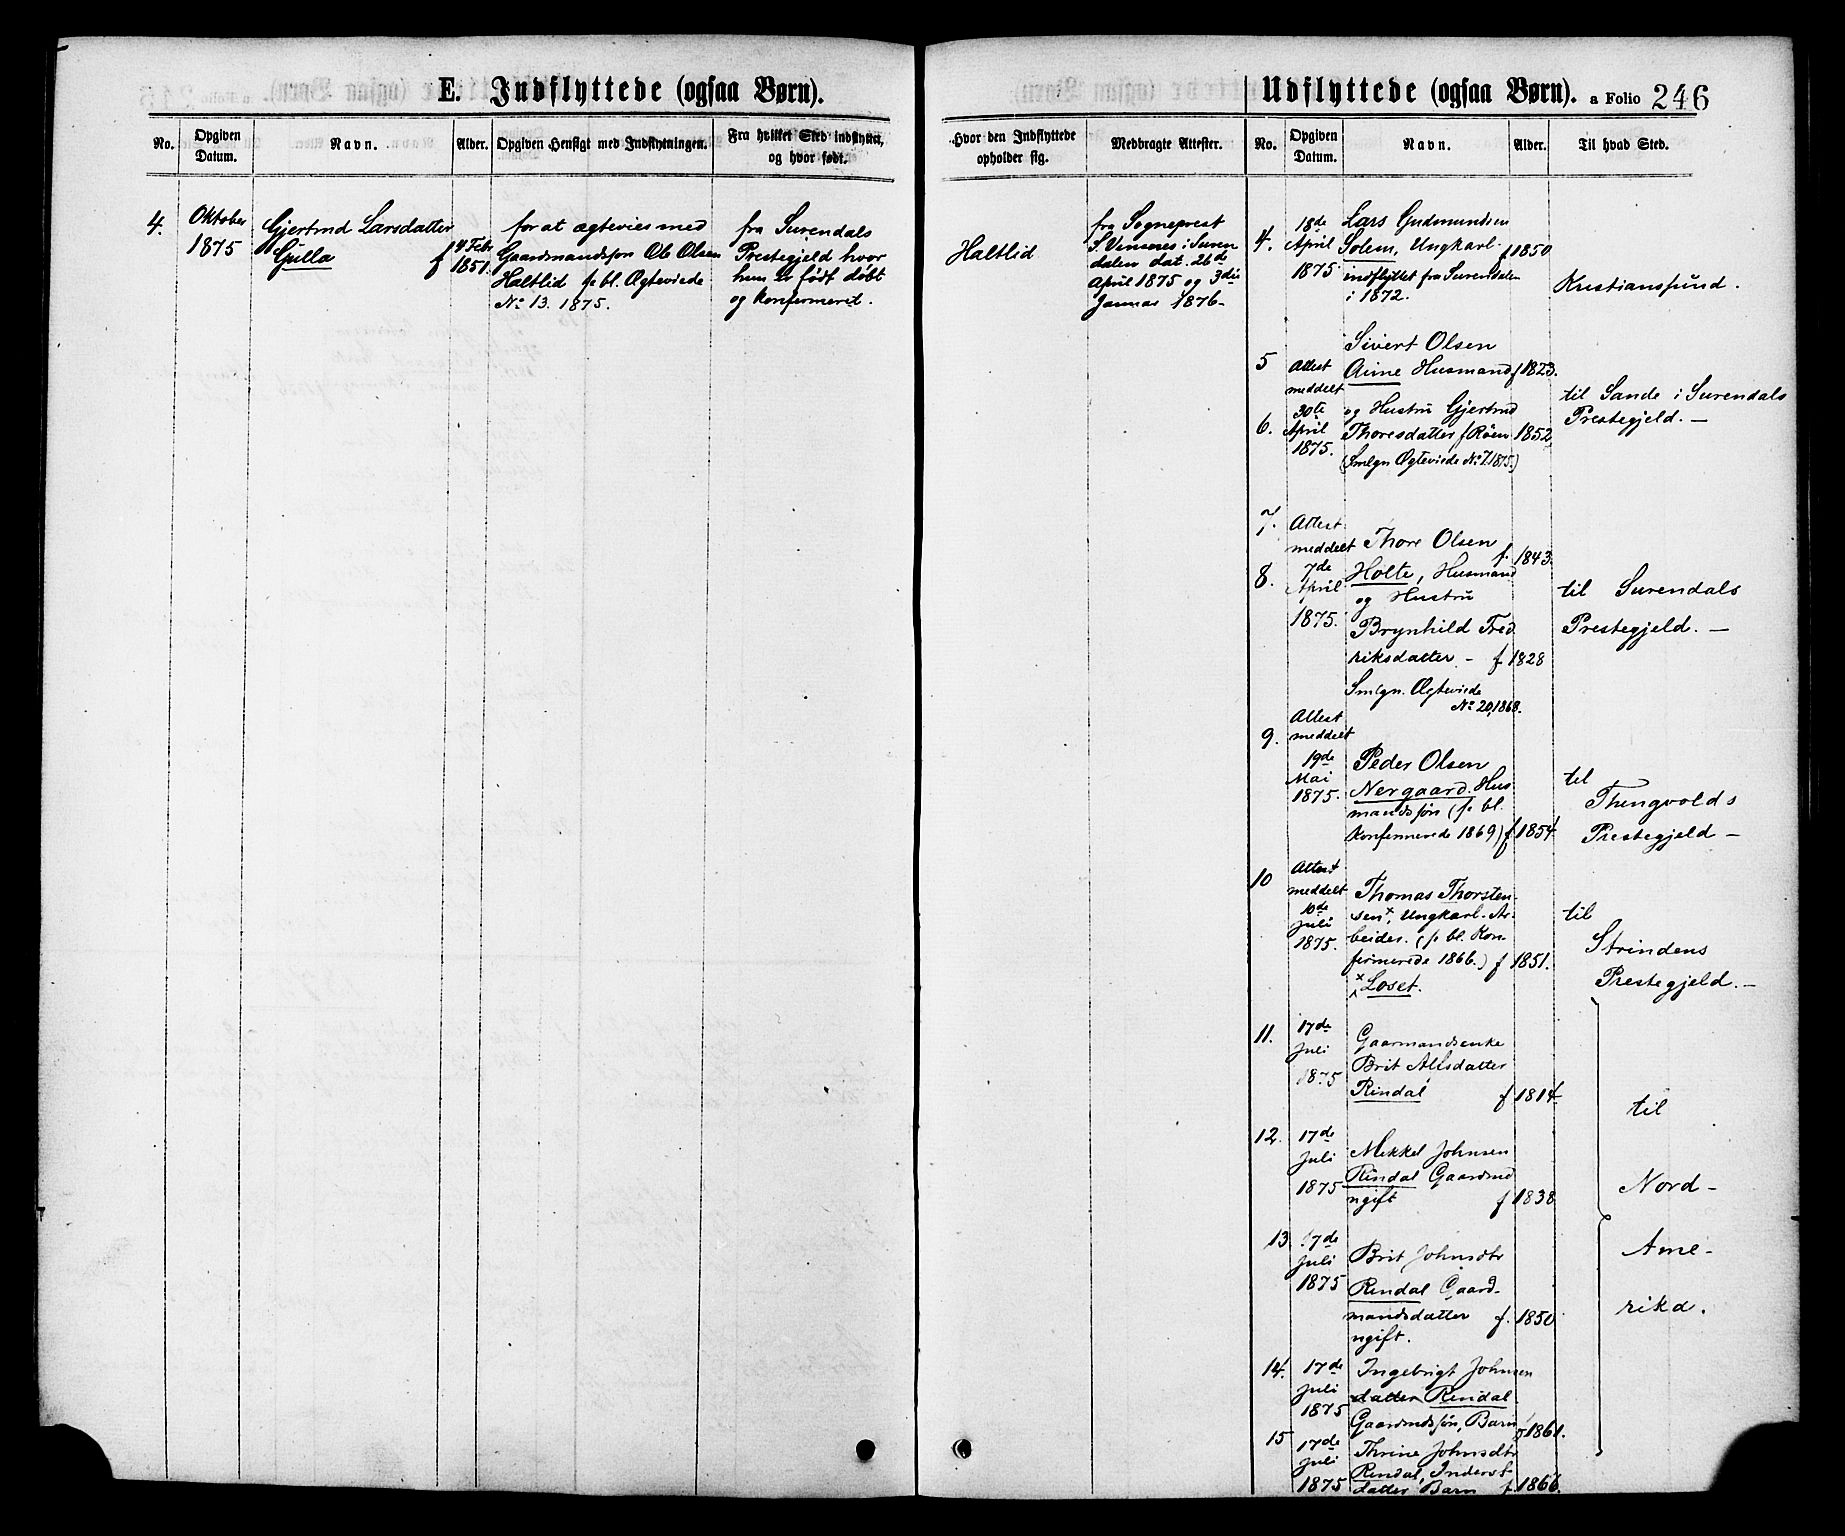 E. Indflyttede (ogsaa Børn).
No.
Opgiven Datum.
Navn.
Alder.
Opgiven Hensigt med Indflytningen.
Fra hvilket Sted indflyttet, og hvor født.
4.
Oktober
1875
Gjertrud Larsdatter
Gulla
f 4 Febr
1851.
for at ægtevies med
Gaardmandssøn Ole Olsen
Haltlid fr bl. Ægteviede
No 13. 1875.
fra Surendals
Prestegjeld hvor
hun er født døbt
og konfirmeret.
Udflyttede (ogsaa Børn). a Folio 246
Hvor den Indflyttede opholder sig.
Medbragte Attester.
No.
Opgiven Datum.
Navn.
Alder.
Til hvad Sted.
Haltlid
fra Sogneprest
S. Vensnes i Suren
dalen dat. 26de
April 1875 og 3die
Januar 1876-
4.
18de
April
1875
Lars Gudmundsen
Solem, Ungkarl
f 1850
indflyttet fra Surendalen
i 1872.
Kristianssund.
5
6.
Attest
meddelt
30te
April
1875.
Sivert Olsen
Aune Husmand f 1823.
og Hustru Gjertrud
Thoresdatter f Røen 1852
(Smlgn Ægteviede No 7. 1875.)
til Sande i Surendals
Prestegjeld. —
7.
8.
Attest
meddelt
7de
April
1875.
Thore Olsen
f. 1843.
Holte, Husmand
og Hustru
Brynhild Fred
riksdatter - f 1828
Smlgn. Ægteviede
No 20, 1868.
til Surendals
Prestegjeld. —
9.
Attest
meddelt
19de
Mai
1875.
Peder Olsen
Nergaard Hus
mandssøn (fr bl.
Konfirmerede 1869) f 1854
til
Thingvolds
Prestegjeld —
10
Attest
meddelt
10de
Juli
1875.
Thomas Thorsten
sen x, Ungkarl. Ar-
beider. (fr bl. Kon-
firmerede 1866.) f 1851.
x Løset.
til
Strindens
Prestegjeld. —
11.
17de
Juli
1875
Gaarmandsenke
Brit Allsdatter
Rindal
f 1814
12.
17de
Juli
1875
Mikkel Johnsen
Rindal Gaardmd
ugift f 1838
13
17de
Juli
1875
Brit Johnsdtr
Rindal Gaard-
mandsdatter f. 1850
ugift.
14.
17de
Juli
1875
Ingebrigt Johnsen
datter Rindal
Gaardmdssøn, Barn f 1861.
15
17de
Juli
1875
Thrine Johnsdtr
Rindal, Inderst
datter Barn f. 1866.
til
Nord-
Ame-
rika.